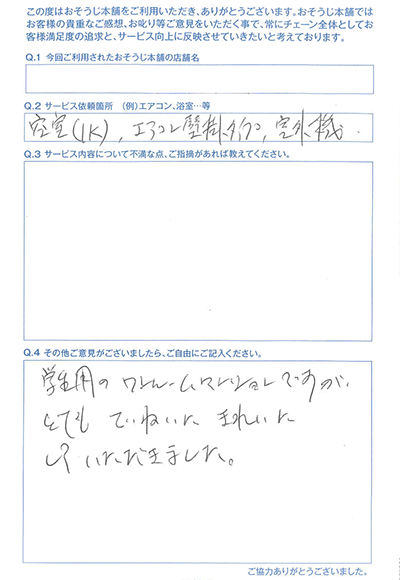 この度はおそうじ本舗をご利用いただき、ありがとうございます。おそうじ本舗では
お客様の貴重なご感想、お叱り等ご意見をいただく事で、常にチェーン全体としてお
客様満足度の追求と、サービス向上に反映させていきたいと考えております。
Q.1 今回ご利用されたおそうじ本舗の店舗名
Q.2 サービス依頼箇所 (例)エアコン、浴室…等
空室(1K), エアコン壁掛タイプ,室外機.
Q.3 サービス内容について不満な点、ご指摘があれば教えてください。
Q.4 その他ご意見がございましたら、ご自由にご記入ください。
学生用のワンルームマンションですが、
とても ていねいに きれいに
して いただきました。
ご協力ありがとうございました。